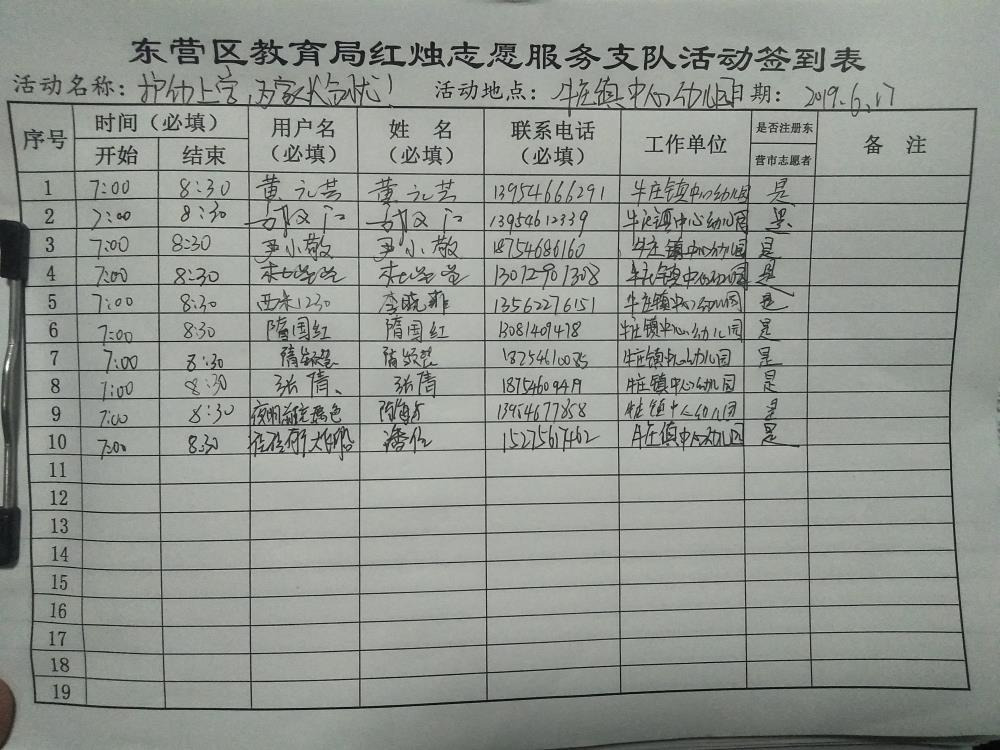 东营区教育局红烛志愿服务支队活动签到表
活动名称：护幼上学,为家长分忧！ 活动地点：牛庄镇中心幼儿园 日期：2019.6.17
序号 时间（必填） 用户名（必填） 姓 名（必填） 联系电话（必填） 工作单位 是否注册东营市志愿者 备 注
开始 结束
1 7:00 8:30 黄元芸 黄元芸 13954666291 牛庄镇中心幼儿园 是
2 7:00 8:30 13954612339 牛庄镇中心幼儿园 是
3 7:00 8:30 尹小敬 尹小敬 18754686160 牛庄镇中心幼儿园 是
4 7:00 8:30 13072901308 牛庄镇中心幼儿园 是
5 7:00 8:30 西来1230 李晓菲 13562276151 牛庄镇中心幼儿园 是
6 7:00 8:30 隋国红 隋国红 13081409478 牛庄镇中心幼儿园 是
7 7:00 8:30 牛庄镇中心幼儿园 是
8 7:00 8:30 张倩、 张倩 牛庄镇中心幼儿园 是
9 7:00 8:30 13954677858 牛庄镇中心幼儿园 是
10 7:00 8:30 潘佳 15275617462 牛庄镇中心幼儿园 是
11
12
13
14
15
16
17
18
19